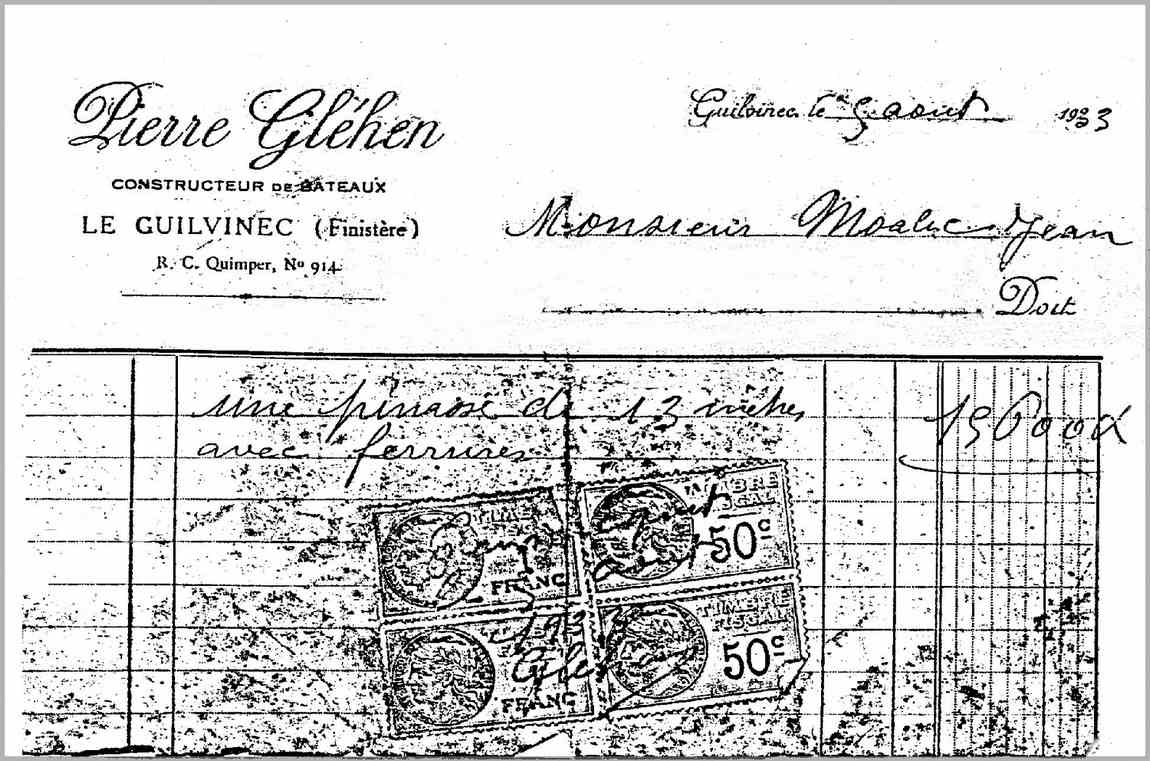 Pierre Gléhen
CONSTRUCTEUR DE BATEAUX
LE GUILVINEC (Finistère)
R. C. Quimper, Nº 914
Guilvinec, le 5 août 1933
Monsieur Moalic Jean
Doit
une pinasse de 13 mètres 195000
avec ferrures
TIMBRE
FISCAL
50c
FRANC
TIMBRE
FISCAL
50c
FRANC